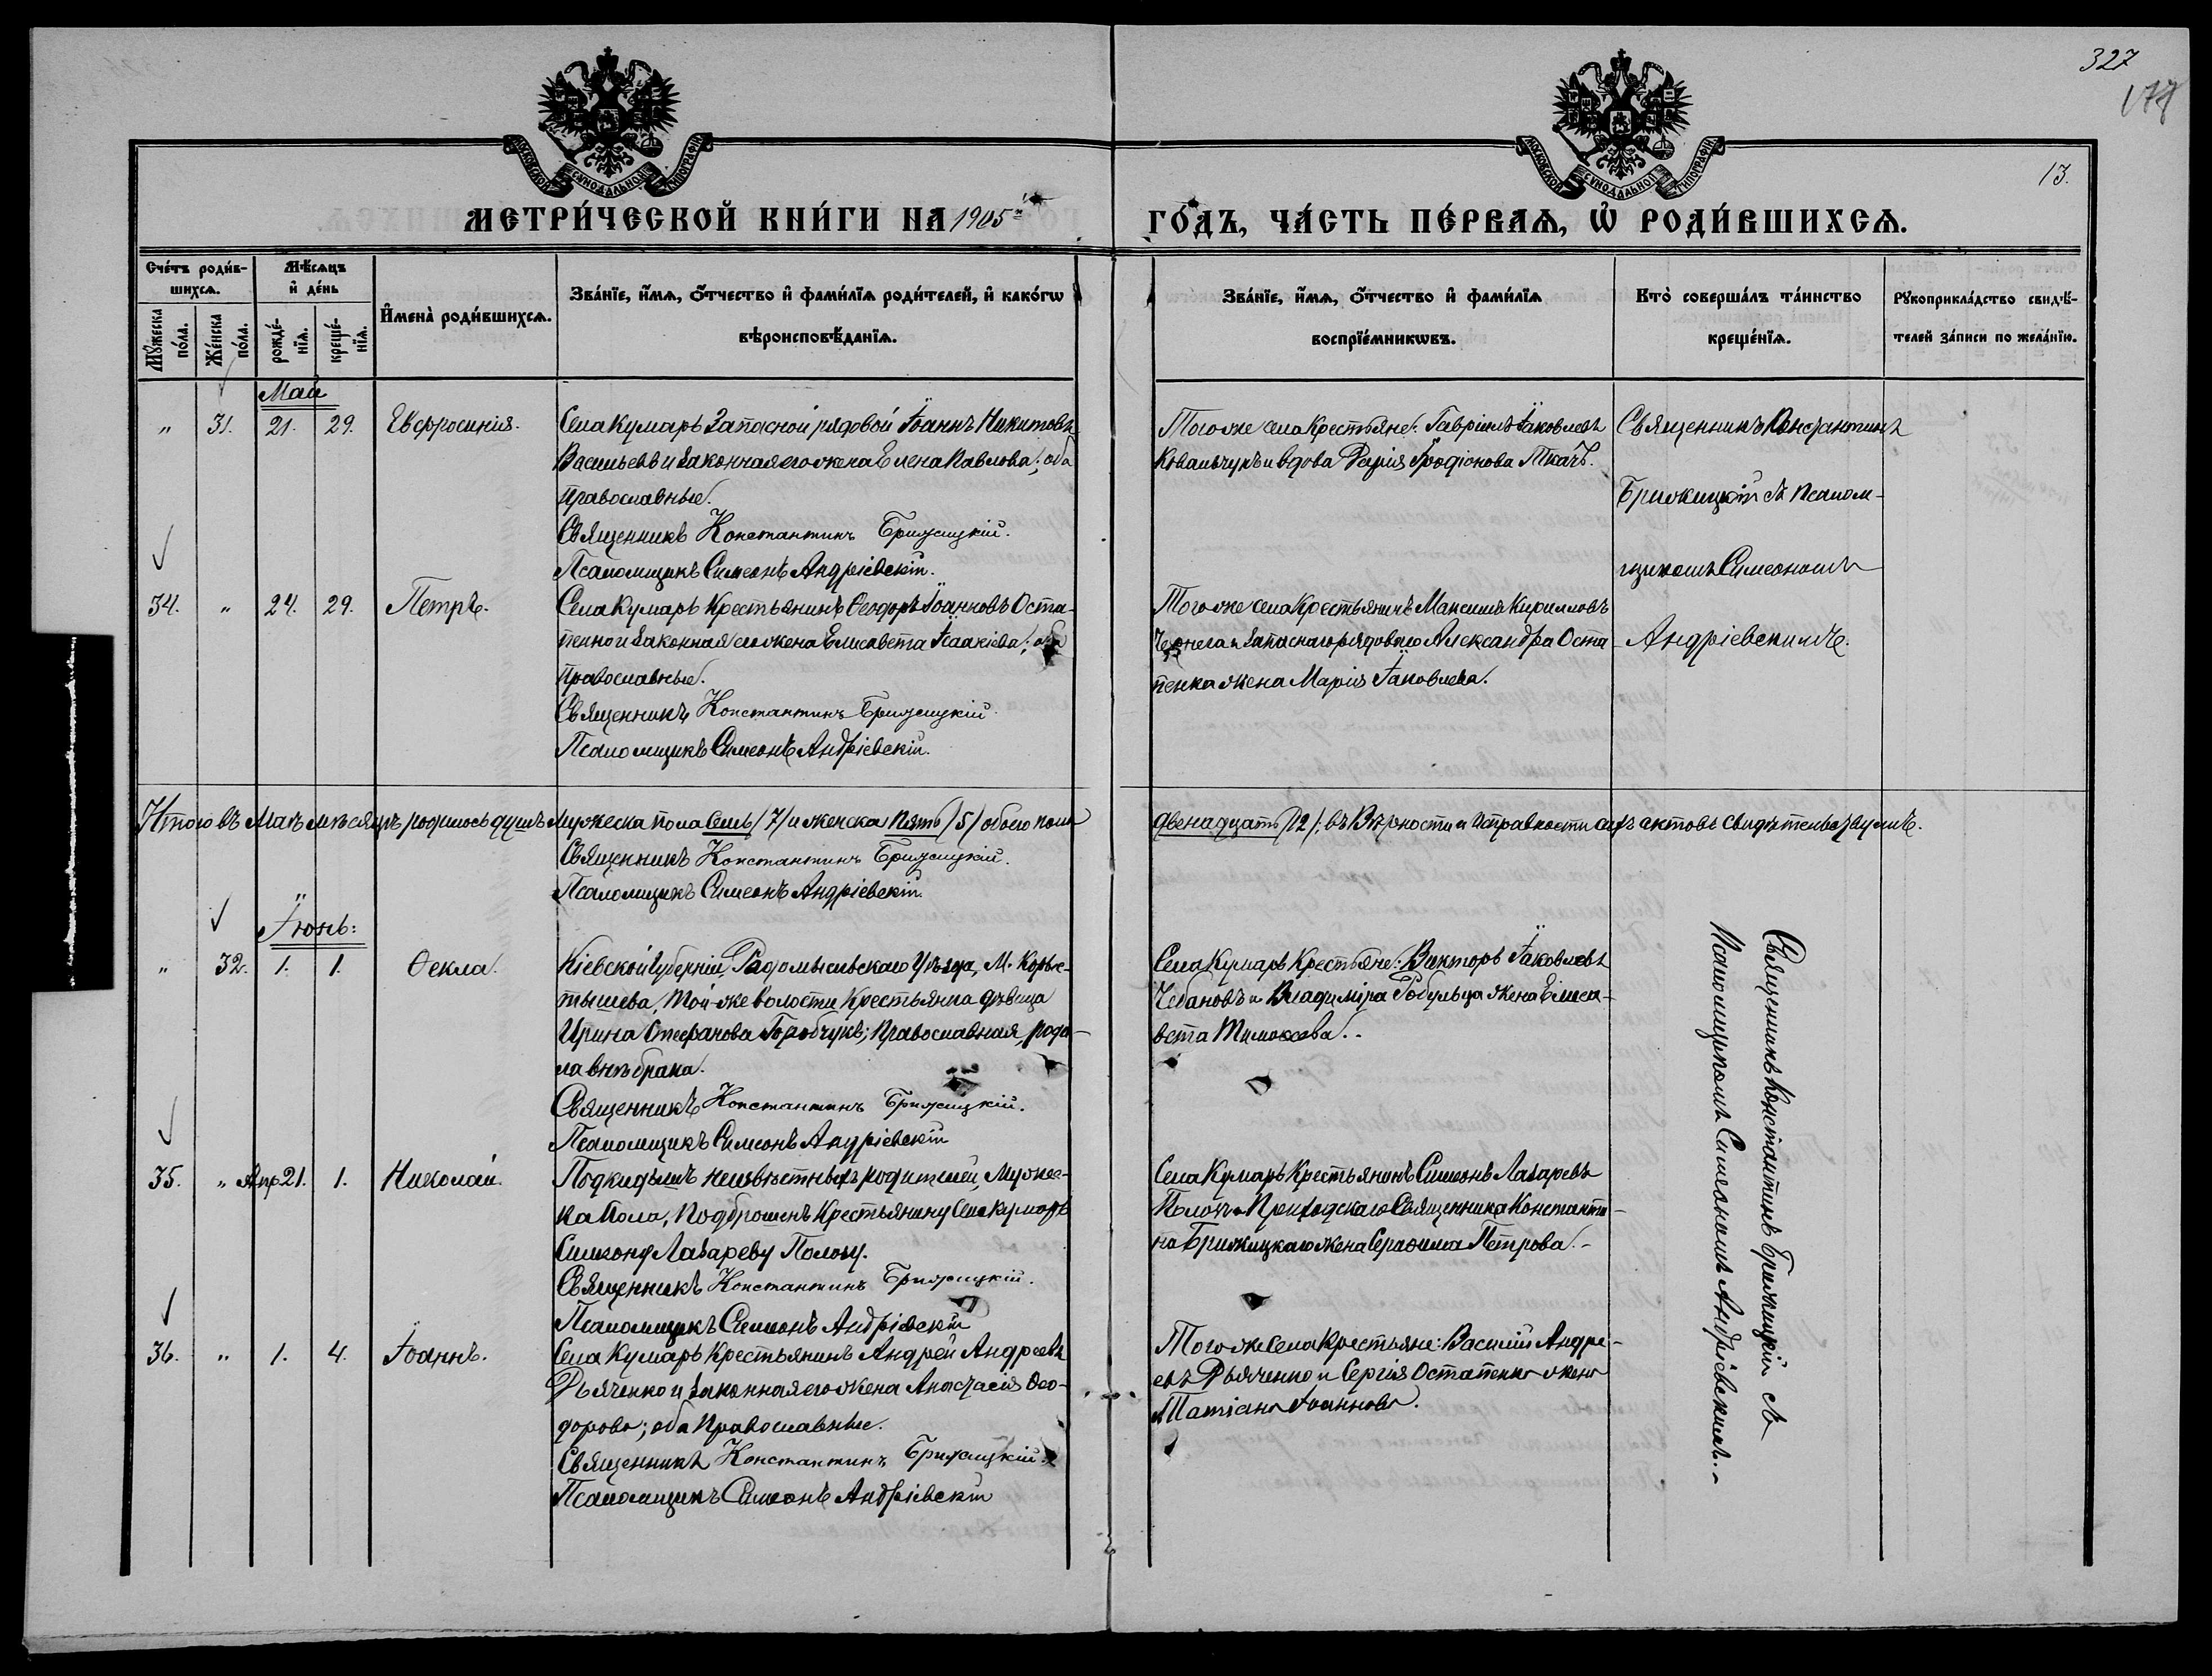 327
13.
МОСКОВСКОЙ СѴНОДАЛЬНОЙ ТИПОГРАФІИ
МОСКОВСКОЙ СѴНОДАЛЬНОЙ ТИПОГРАФІИ
МЕТРИ́ЧЕСКОЙ КНИ́ГИ НА 1905й
ГО́ДЪ, ЧА́СТЬ ПЕ́РВАѦ, Ѡ҆ РОДИ́ВШИХСѦ.
Сче́тъ роди́в-
шихсѧ.
Мѣ́сѧцъ
и҆ де́нь
Мꙋ́жеска
по́ла.
Же́нска
по́ла.
рожде́-
нїѧ.
креще́-
нїѧ.
И҆мена̀ роди́вшихсѧ.
Зва́нїе, и҆́мѧ, ѻ҆́тчество и҆ фами́лїѧ роди́телей, и҆ како́гѡ
вѣроисповѣ́данїѧ.
Зва́нїе, и҆́мѧ, ѻ҆́тчество и҆ фами́лїѧ
воспрїе́мникѡвъ.
Кто̀ соверша́лъ та́инство
креще́нїѧ.
Рꙋкоприкла́дство свидѣ́-
телей за́писи по жела́нїю.
Май
" 31. 21. 29. Евфросинія.
Села Кумарь Запасной рядовой Іоаннъ Никитовъ
Васильевъ и законная его жена Елена Павлова; оба
православные.
Священникъ Константинъ Брижицкій.
Псаломщикъ Симеонъ Андріевскій.
Того же села Крестьяне: Гавріилъ Іаковлевъ
Ковальчукъ и вдова Дарія Іродіонова Ткачъ.
Священникъ Константинъ
Брижицкій съ Псалом-
щикомъ Симеономъ
Андріевскимъ.
34. " 24. 29. Петръ.
Села Кумарь Крестьянинъ Ѳеодоръ Іоанновъ Оста-
пенко и законная его жена Елисавета Ісаакіева; оба
православные.
Священникъ Константинъ Брижицкій.
Псаломщикъ Симеонъ Андріевскій.
Того же села Крестьянинъ Максимъ Кирилловъ
Чернега и Запаснаго рядоваго Александра Оста-
пенка жена Марія Іаковлева.
Итого въ Маѣ мѣсяцѣ родилось душъ мужеска пола семь /7/ и женска пять /5/ обоего пола
двенадцать /12/; въ вѣрности и исправности сихъ актовъ свидѣтельствуемъ.
Священникъ Константинъ Брижицкій.
Псаломщикъ Симеонъ Андріевскій.
Іюнь:
" 32. 1. 1. Ѳекла.
Кіевской Губерніи, Радомысльскаго Уѣзда, М. Коры-
тышева, той-же волости Крестьянка дѣвица
Ирина Стефанова Горобчукъ; Православная, роди-
ла внѣ брака.
Священникъ Константинъ Брижицкій.
Псаломщикъ Симеонъ Андріевскій
Села Кумарь Крестьяне: Викторъ Іаковлевъ
Чебановъ и Владиміра Робульца жена Елиса-
вета Тимоѳеева.
Священникъ Константинъ Брижицкій съ
Псаломщикомъ Симеономъ Андріевскимъ.-
35. " Апр. 21. 1. Николай.
Подкидышъ неизвѣстныхъ родителей, Мужес-
ка пола, подброшенъ Крестьянину Села Кумарь
Симеону Лазареву Полозу.
Священникъ Константинъ Брижицкій.
Псаломщикъ Симеонъ Андріевскій
Села Кумарь Крестьянинъ Симеонъ Лазаревъ
Полозъ и Приходскаго Священника Константи-
на Брижицкаго жена Серафима Петрова.-
36. " 1. 4. Іоаннъ.
Села Кумарь Крестьянинъ Андрей Андреевъ
Дьяченко и законная его жена Анастасія Ѳео-
дорова; оба Православные.
Священникъ Константинъ Брижицкій.
Псаломщикъ Симеонъ Андріевскій
Того же Села Крестьяне: Василій Андре-
евъ Дьяченко и Сергія Остапенка жена
Татіана Іоаннова.